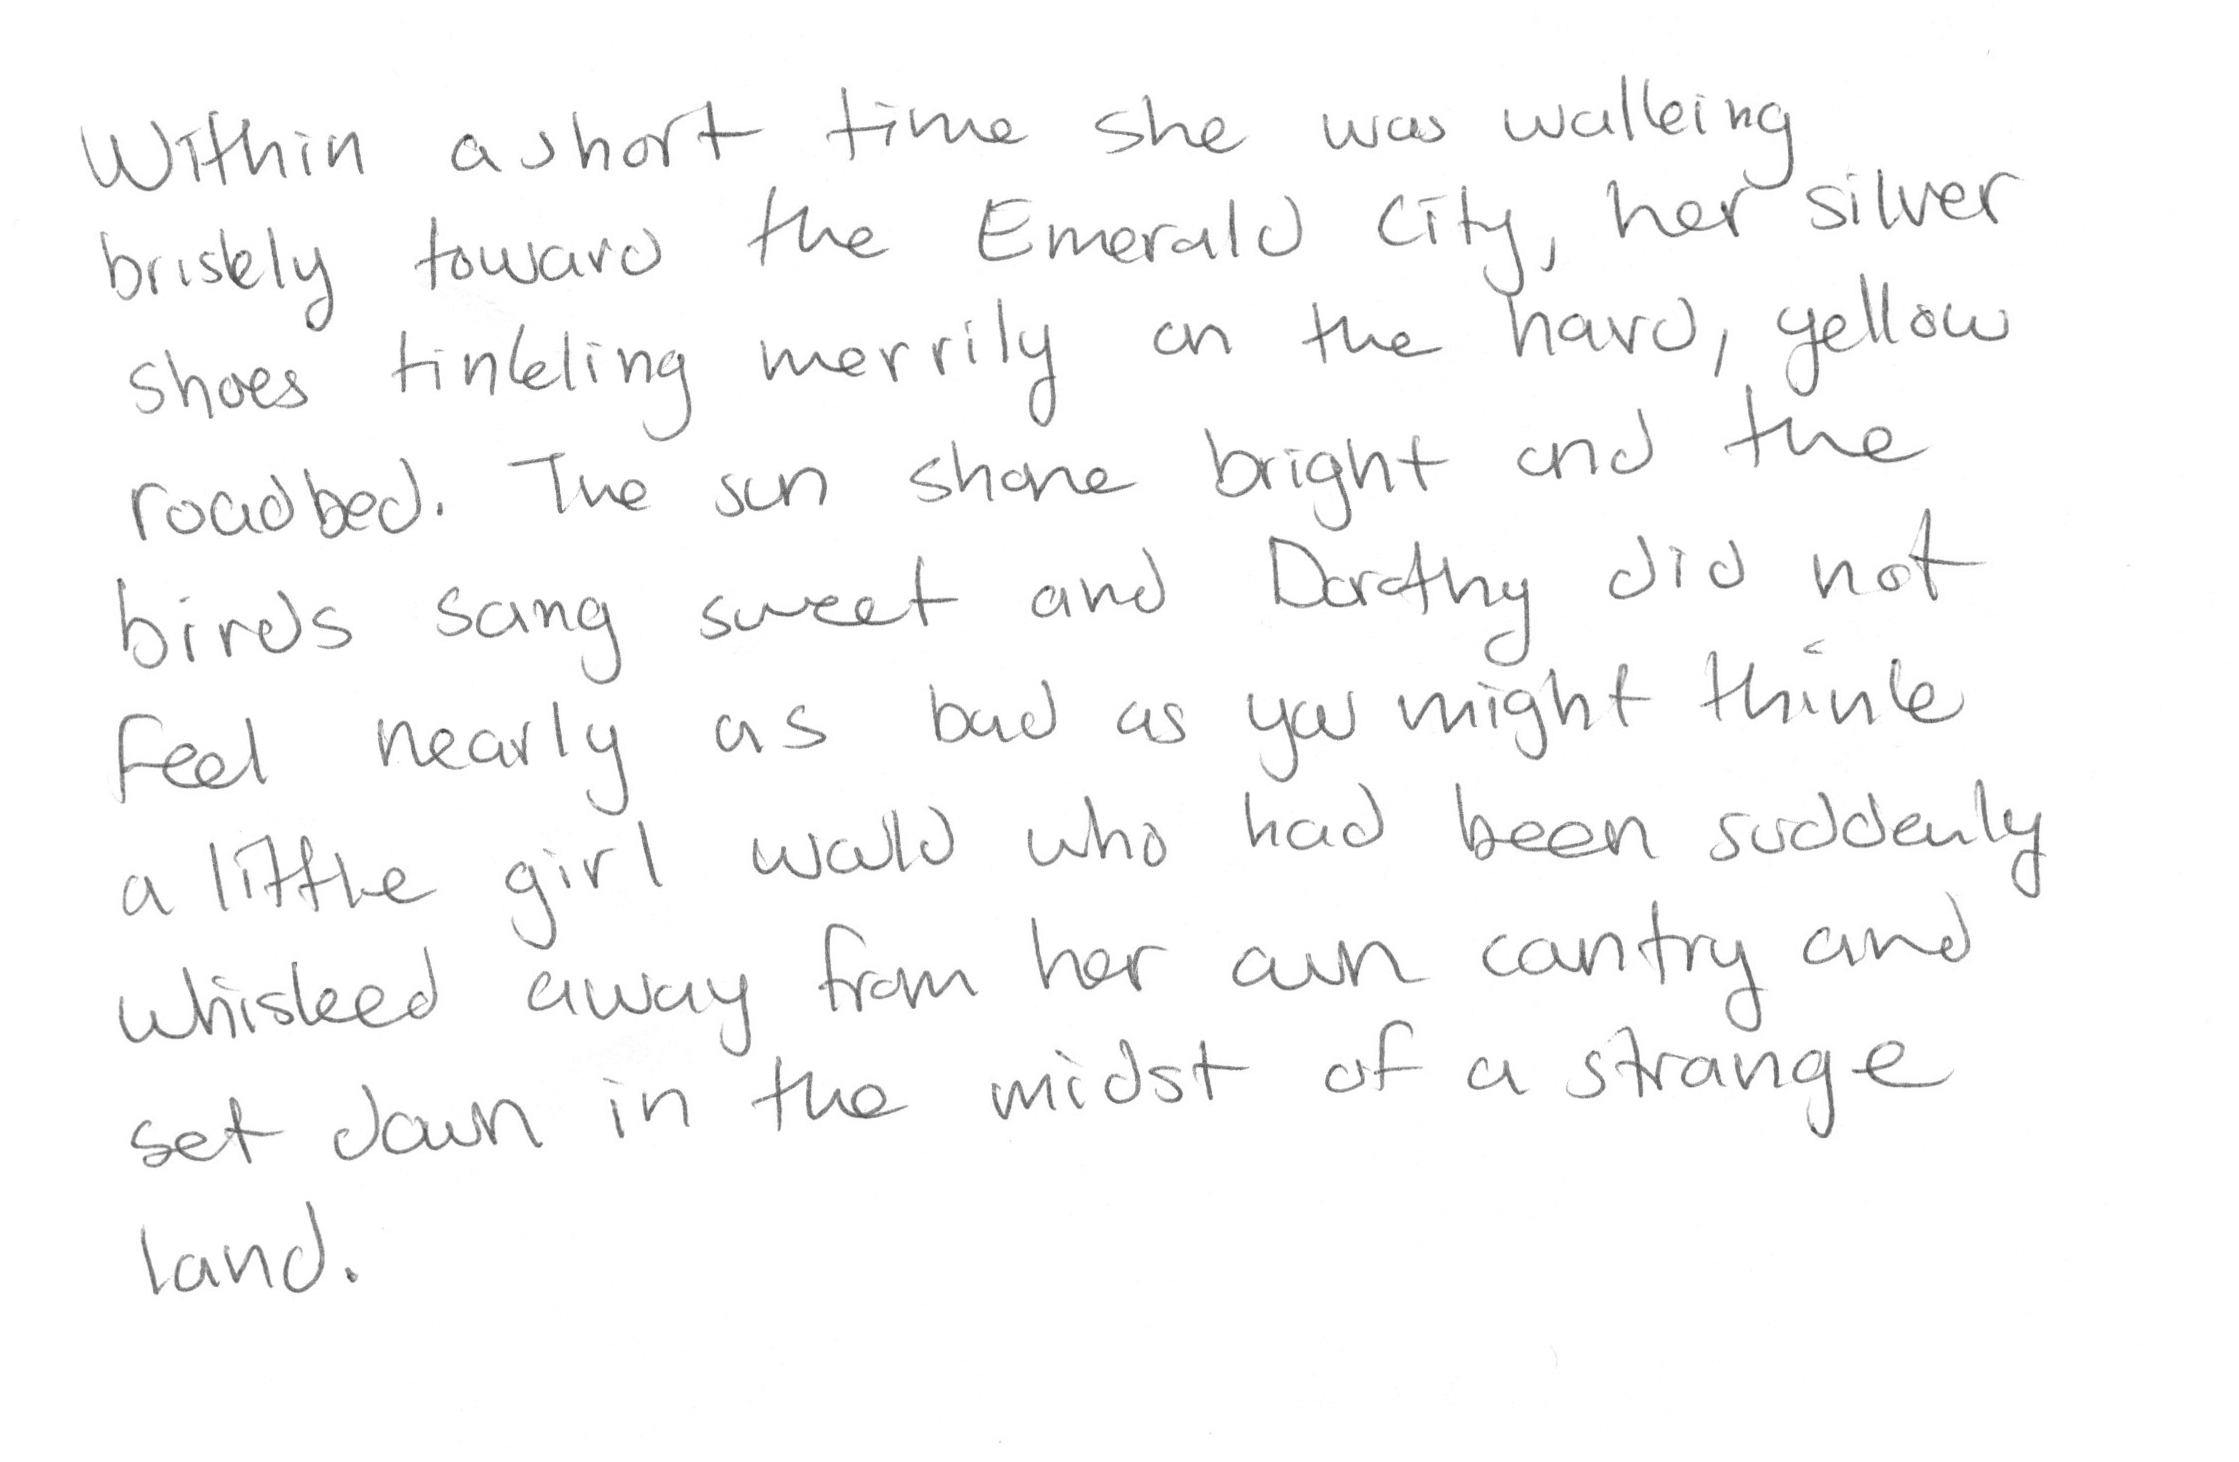 Within a short time she was walking
briskly toward the Emerald City, her silver
shoes tinkling merrily on the hard, yellow
roadbed. The sun shone bright and the
birds sang sweet and Dorothy did not
feel nearly as bad as you might think
a little girl would who had been suddenly
whisked away from her own country and
set down in the midst of a strange
land.